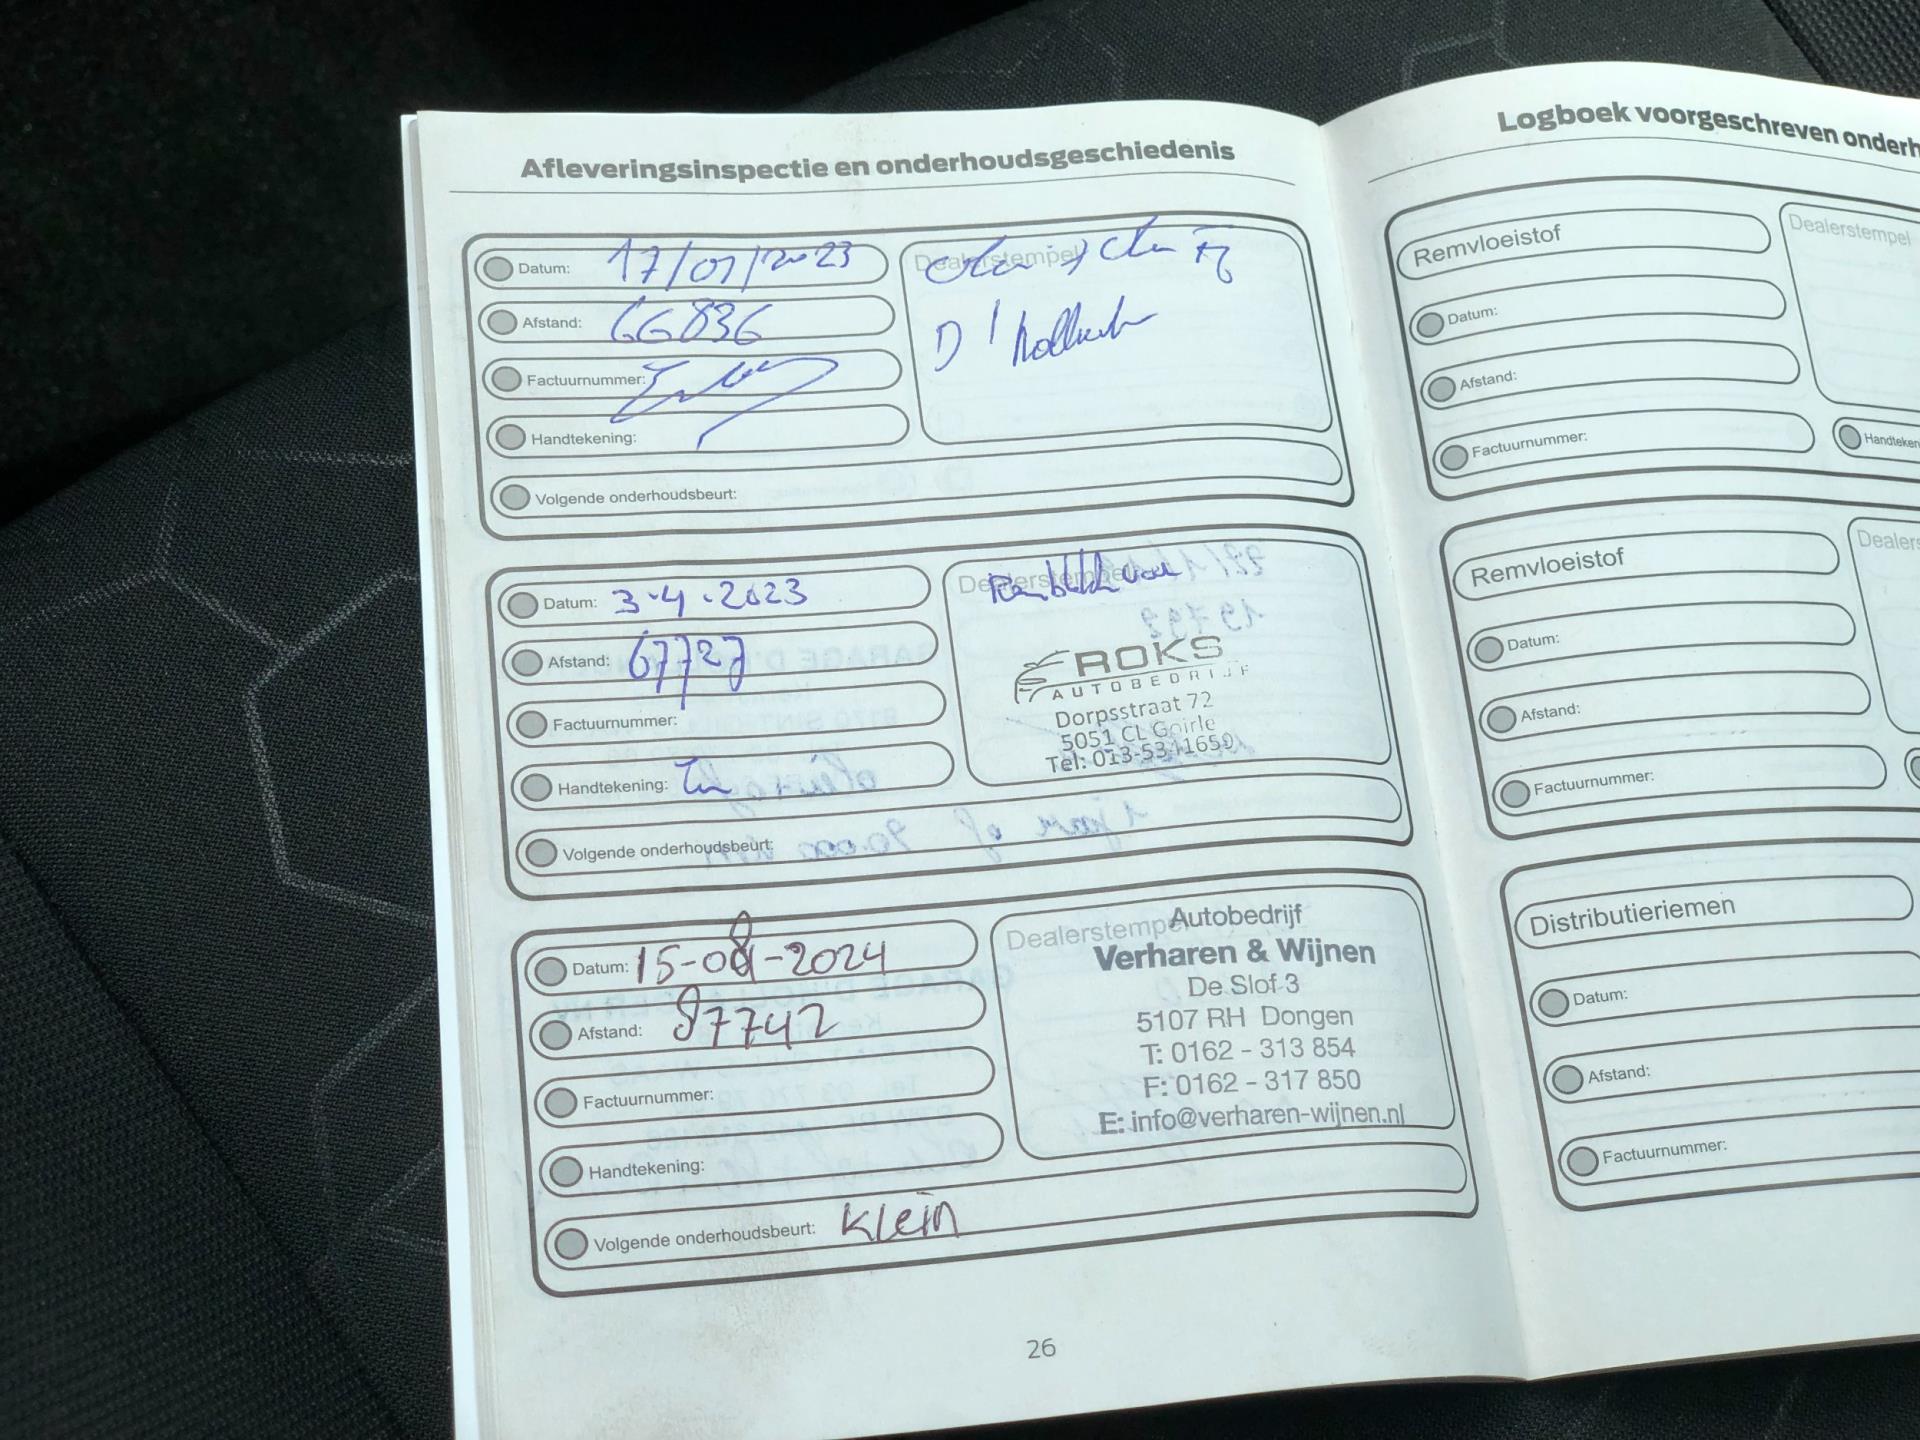 Afleveringsinspectie en onderhoudsgeschiedenis
Datum: 17/01/2023
Dealerstempel
Afstand: 66836
D'hollander
Factuurnummer:
Handtekening:
Volgende onderhoudsbeurt:
Datum: 3-4-2023
Dealerstempel
Remblokken voor
Afstand: 67727
ROKS
AUTOBEDRIJF
Dorpsstraat 72
5051 CL Goirle
Tel: 013-5341650
Factuurnummer:
Handtekening:
Volgende onderhoudsbeurt:
Datum: 15-08-2024
Dealerstempel
Autobedrijf
Verharen & Wijnen
De Slof 3
5107 RH Dongen
T: 0162 - 313 854
F: 0162 - 317 850
E: info@verharen-wijnen.nl
Afstand: 87742
Factuurnummer:
Handtekening:
Volgende onderhoudsbeurt: Klein
26
Logboek voorgeschreven onderh
Remvloeistof
Dealerstempel
Datum:
Afstand:
Factuurnummer:
Handteken
Remvloeistof
Dealers
Datum:
Afstand:
Factuurnummer:
Distributieriemen
Datum:
Afstand:
Factuurnummer: